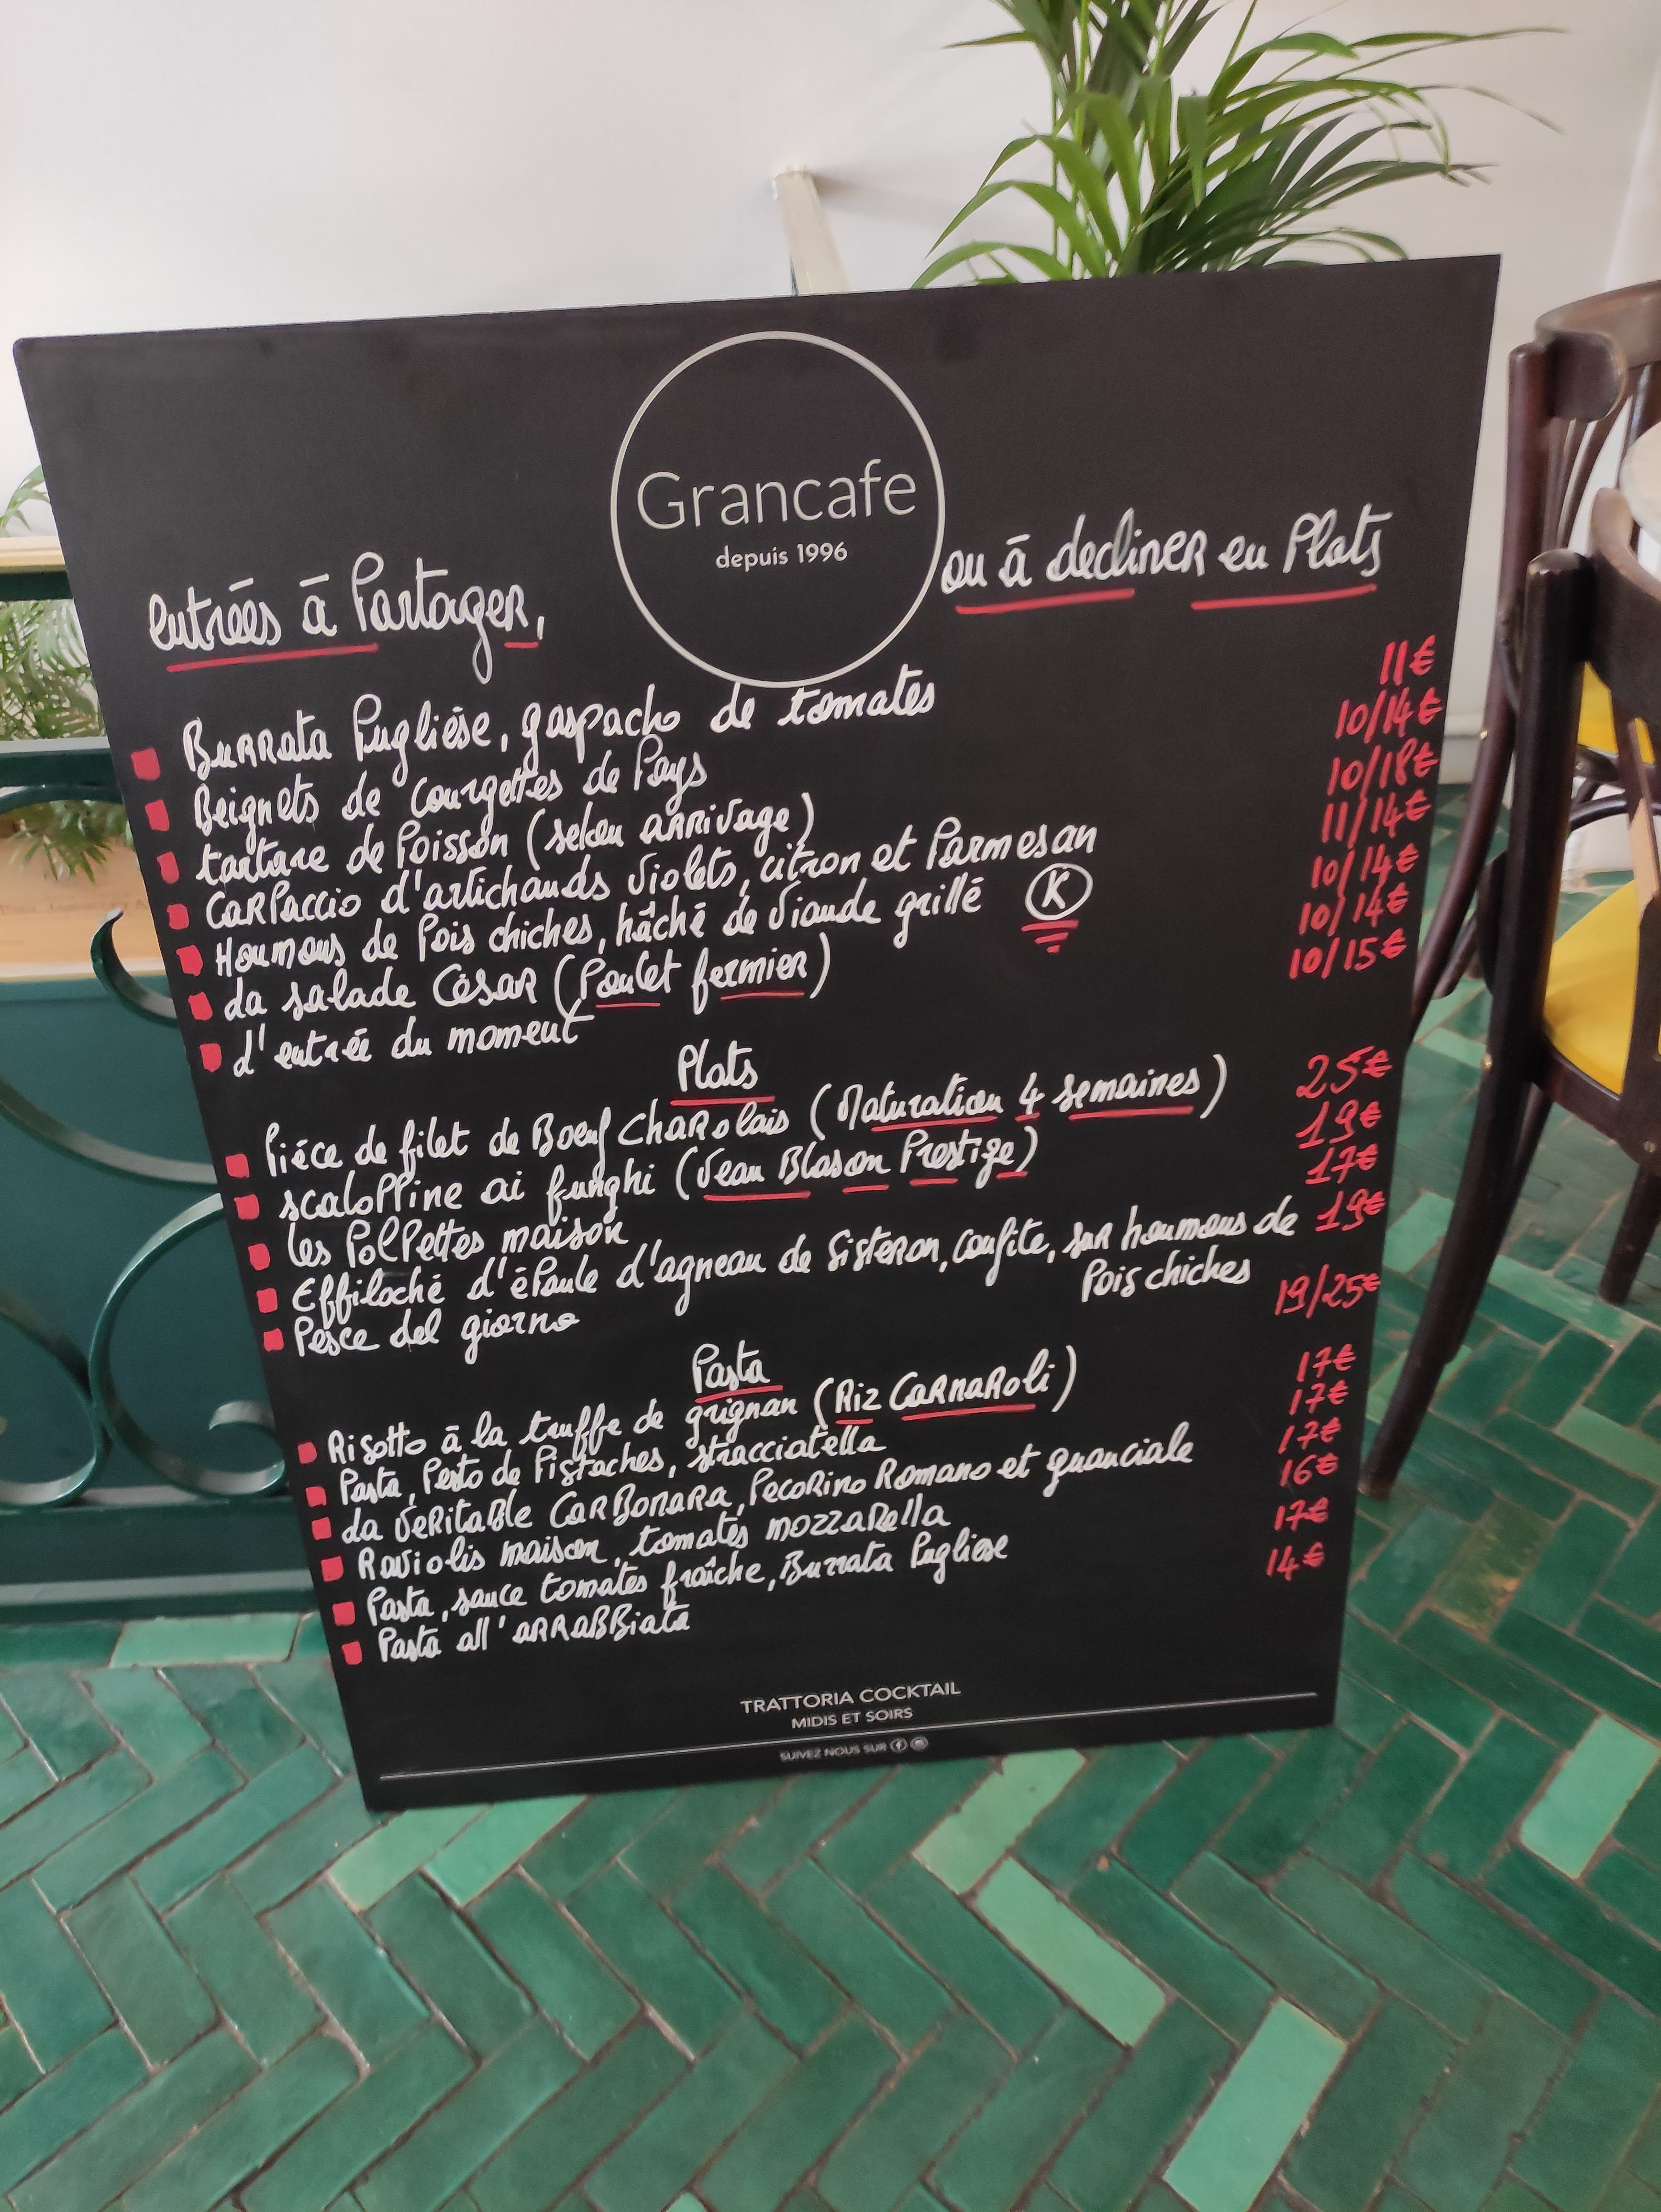 Grancafe
depuis 1996
entrées à Partager, ou à decliner en Plats
Burrata Pugliése, gaspacho de tomates 11€
Beignets de Courgettes de Pays 10/14€
tartare de Poisson (selon arrivage) 10/18€
Carpaccio d'artichauds violets, citron et Parmesan 11/14€
Houmous de Pois chiches, hâché de viande grillé K 10/14€
La salade César (Poulet fermier) 10/14€
L'entrée du moment 10/15€
Plats
Piéce de filet de Boeuf Charolais (Maturation 4 semaines) 25€
scaloppine ai funghi (Veau Blason Prestige) 19€
les PolPettes maison 17€
Effiloché d'épaule d'agneau de Sisteron, confite, sur houmous de 19€
Pois chiches
Pesce del giorno 19/25€
Pasta
Risotto à la truffe de grignan (Riz Carnaroli) 17€
Pasta, Pesto de Pistaches, stracciatella 17€
La veritable Carbonara, Pecorino Romano et guanciale 17€
Raviolis maison, tomates mozzarella 16€
Pasta, sauce tomates fraîche, Burrata Pugliese 17€
Pasta all'arrabbiata 14€
TRATTORIA COCKTAIL
MIDIS ET SOIRS
SUIVEZ NOUS SUR